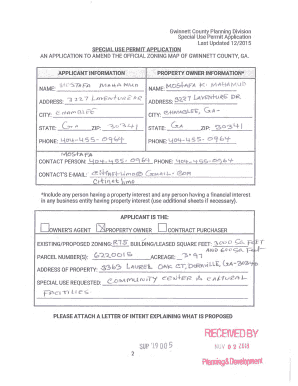 Gwinnett County Planning Division
Special Use Permit Application
Last Updated 12/2015
SPECIAL USE PERMIT APPLICATION
AN APPLICATION TO AMEND THE OFFICIAL ZONING MAP OF GWINNETT COUNTY, GA.
APPLICANT INFORMATION
NAME: MOSTAFA MAHAMUD
ADDRESS: 3227 LAVENTURE DR
CITY: CHAMBLEE
STATE: GA ZIP: 30341
PHONE: 404-455-0964
PROPERTY OWNER INFORMATION*
NAME: MOSTAFA K. MAHMUD
ADDRESS: 3227 LAVENTURE DR
CITY: CHAMBLEE, GA-
STATE: GA ZIP: 30341
PHONE: 404-455-0964
MOSTAFA
CONTACT PERSON: 404-455-0964 PHONE: 404-455-0964
CONTACT'S E-MAIL: citinetlimo@gmail.com
Citinetlimo
*Include any person having a property interest and any person having a financial interest
in any business entity having property interest (use additional sheets if necessary).
APPLICANT IS THE:
OWNER'S AGENT PROPERTY OWNER CONTRACT PURCHASER
EXISTING/PROPOSED ZONING: BUILDING/LEASED SQUARE FEET: 3000 SQ FEET
PARCEL NUMBER(S): 6220015 ACREAGE: 3.97
ADDRESS OF PROPERTY: 3363 LAUREL OAK CT, DORAVILLE, GA-30340
SPECIAL USE REQUESTED: COMMUNITY CENTER & CULTURAL
FACILITIES
PLEASE ATTACH A LETTER OF INTENT EXPLAINING WHAT IS PROPOSED
RECEIVED BY
SUP '19 005
NOV 02 2018
2
Planning & Development